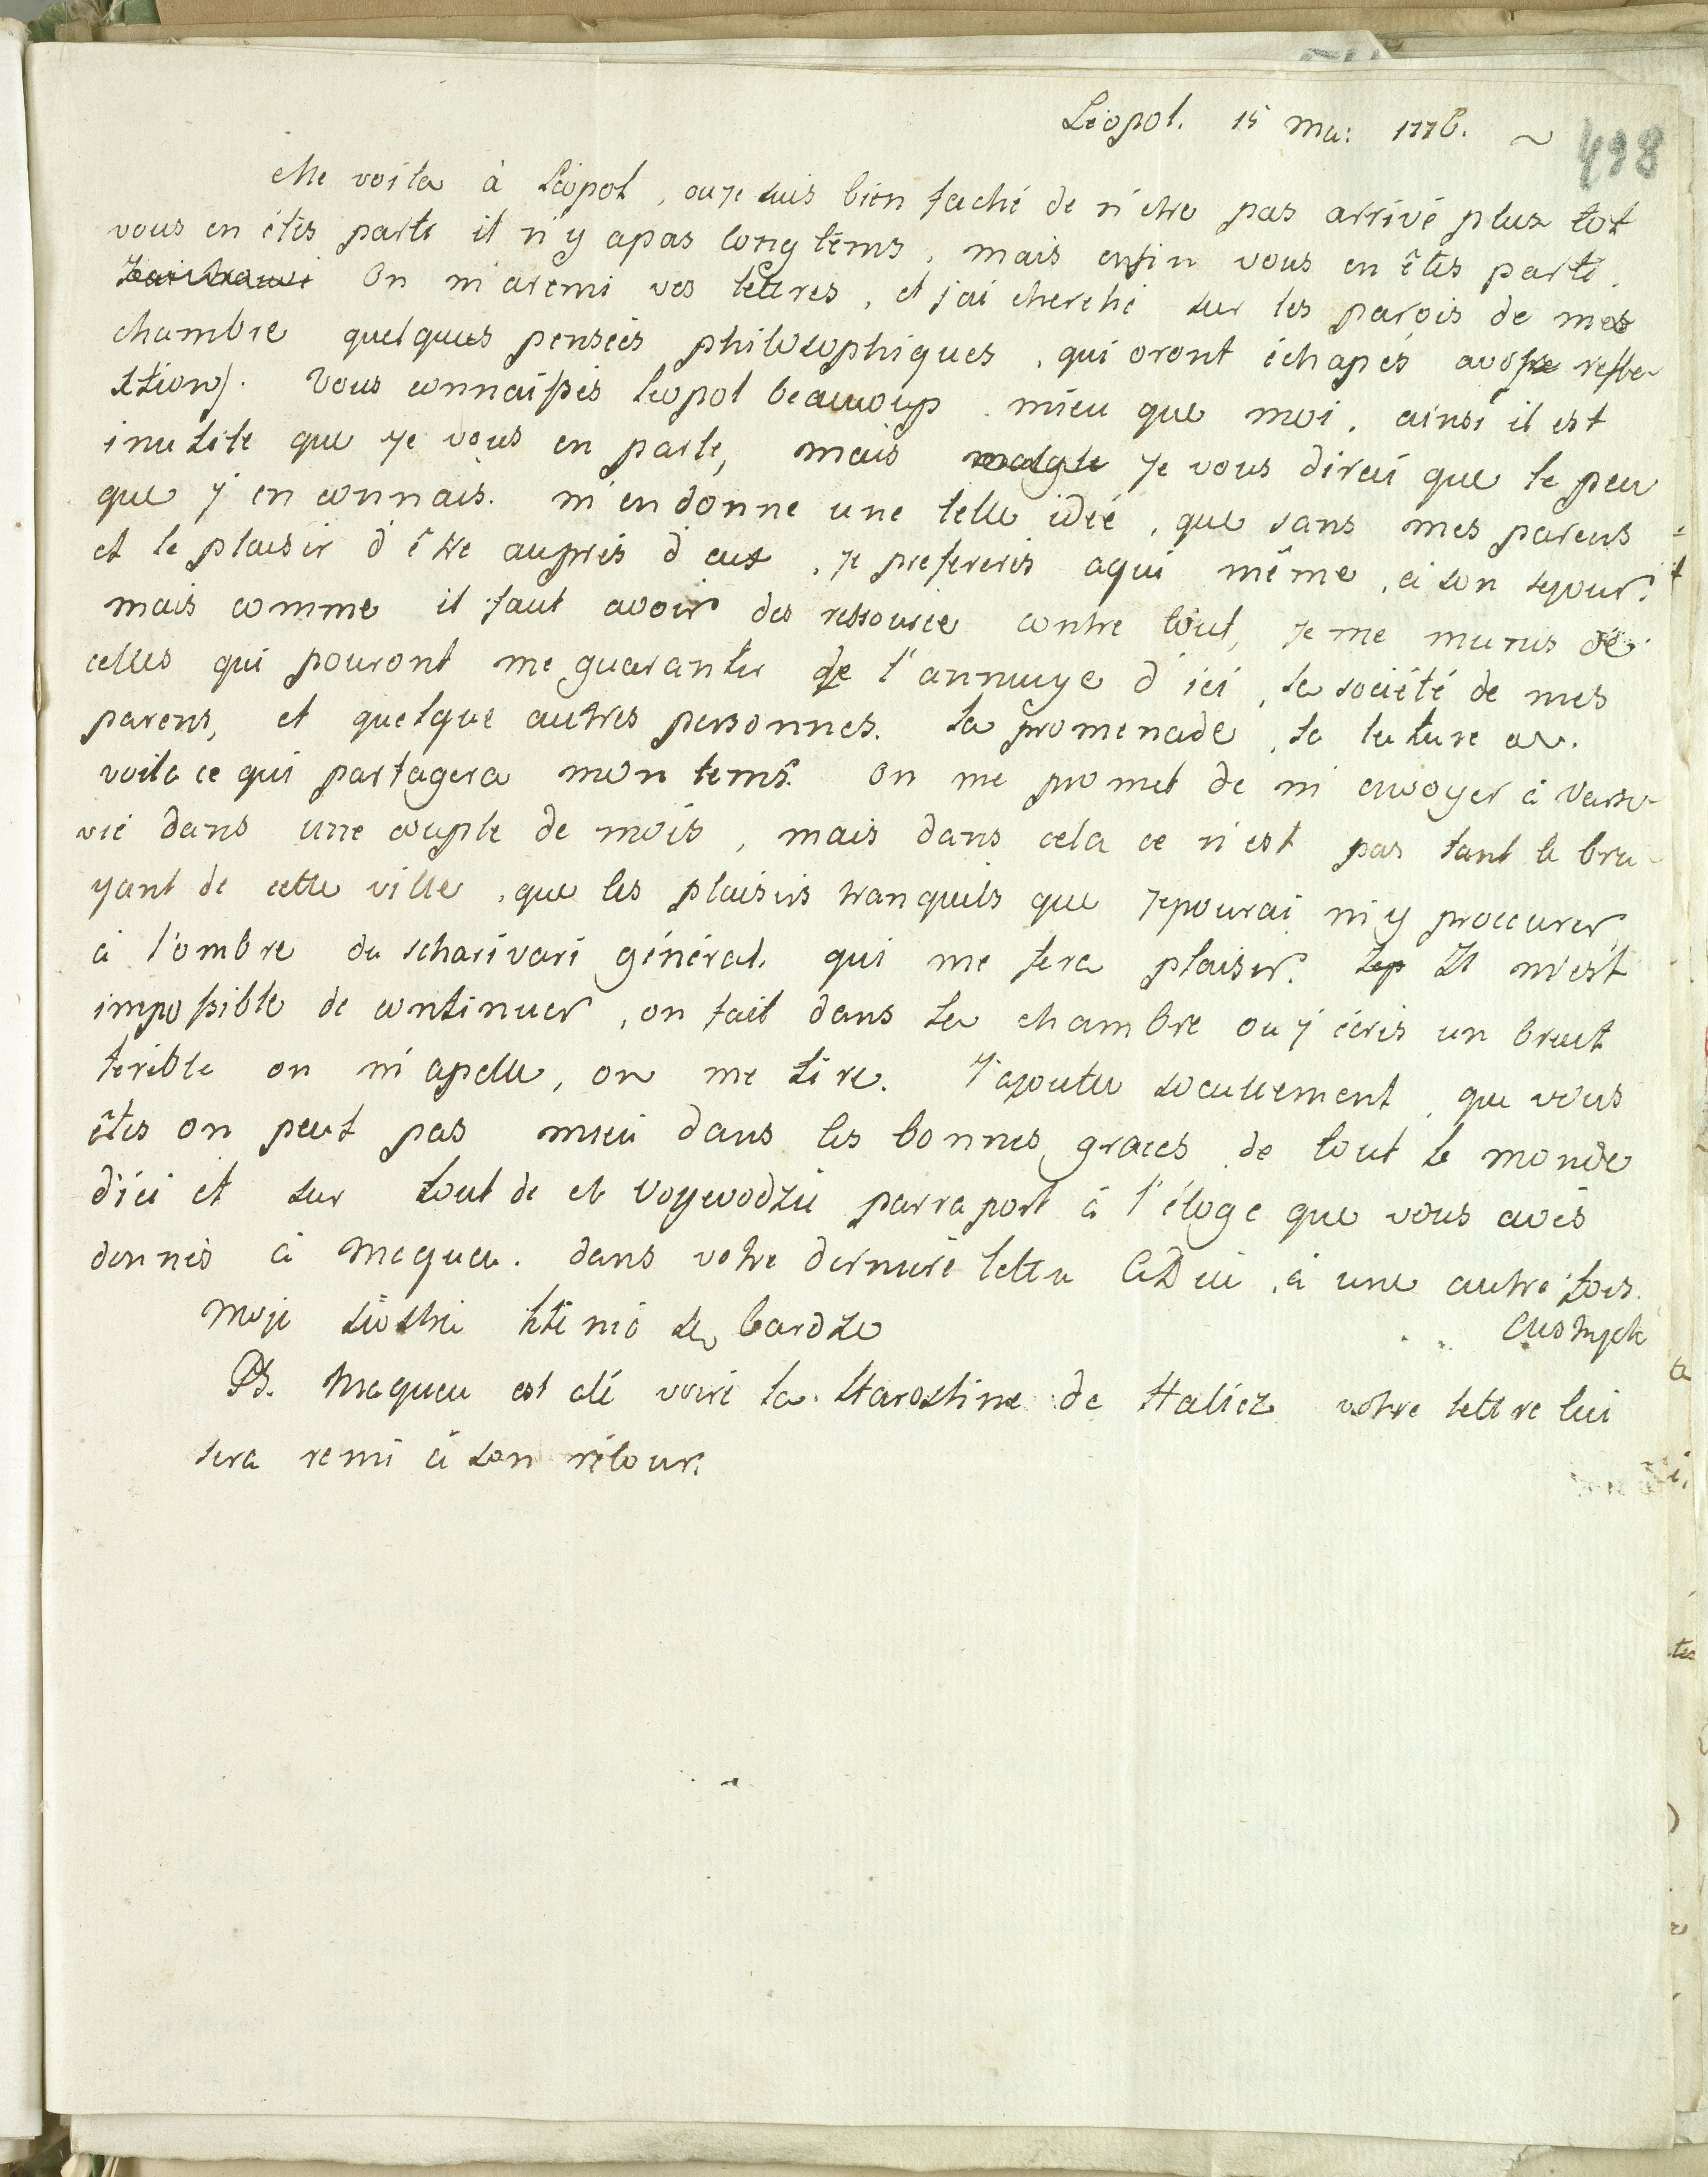 Léopol. 15 Ma: 1776. ~
498
Me voila à Léopol, ou je suis bien faché de n'etre pas arrivé plus tot
vous en étés parti il n'y apas longtems, mais enfin vous en êtés parti.
On m'aremi vos lettres, et j'ai cherché sur les parois de mes
chambre quelques pensées philosophiques, qui oront échapés avos refle-
xtions. Vous connaissés Leopol beaucoup mieu que moi, ainsi il est
inutile que je vous en parle, mais malgle je vous dirai que le peu
que j'en connais. m'en donne une telle idée, que sans mes parens
et le plaisir d'être auprés d'eux, je prefereris aqui même, a son sejour.
mais comme il faut avoir des ressource contre tout, je me munis de
celles qui pouront me guarantir de l'annuye d'ici, la société de mes
parens, et quelque autres personnes. la promenade, la lecture
voila ce qui partagera mon tems. On me promet de m'envoyer à Varso-
vie dans une couple de mois, mais dans cela ce n'est pas tant le bru-
yant de cette ville, que les plaisirs tranquils que jepourai m'y proccurer
à l'ombre du scharivari général, qui me fera plaisir. Il m'est
impossible de continuer, on fait dans la chambre ou j'ecris un bruit
terible on m'apelle, on me tire. J'ajoute seeullement, que vous
êtes on peut pas mieu dans les bonnes graces de tout le monde
d'ici et sur tout de Voyewodzié parraport à l'éloge que vous avés
donnés à Mequeu. dans votre derniere lettre ADieu, à une autre fois.
Moje bardzo
PS. Mequeu est alé voire la Starostine de Halicz votre lettre lui
sera remi à son retour.